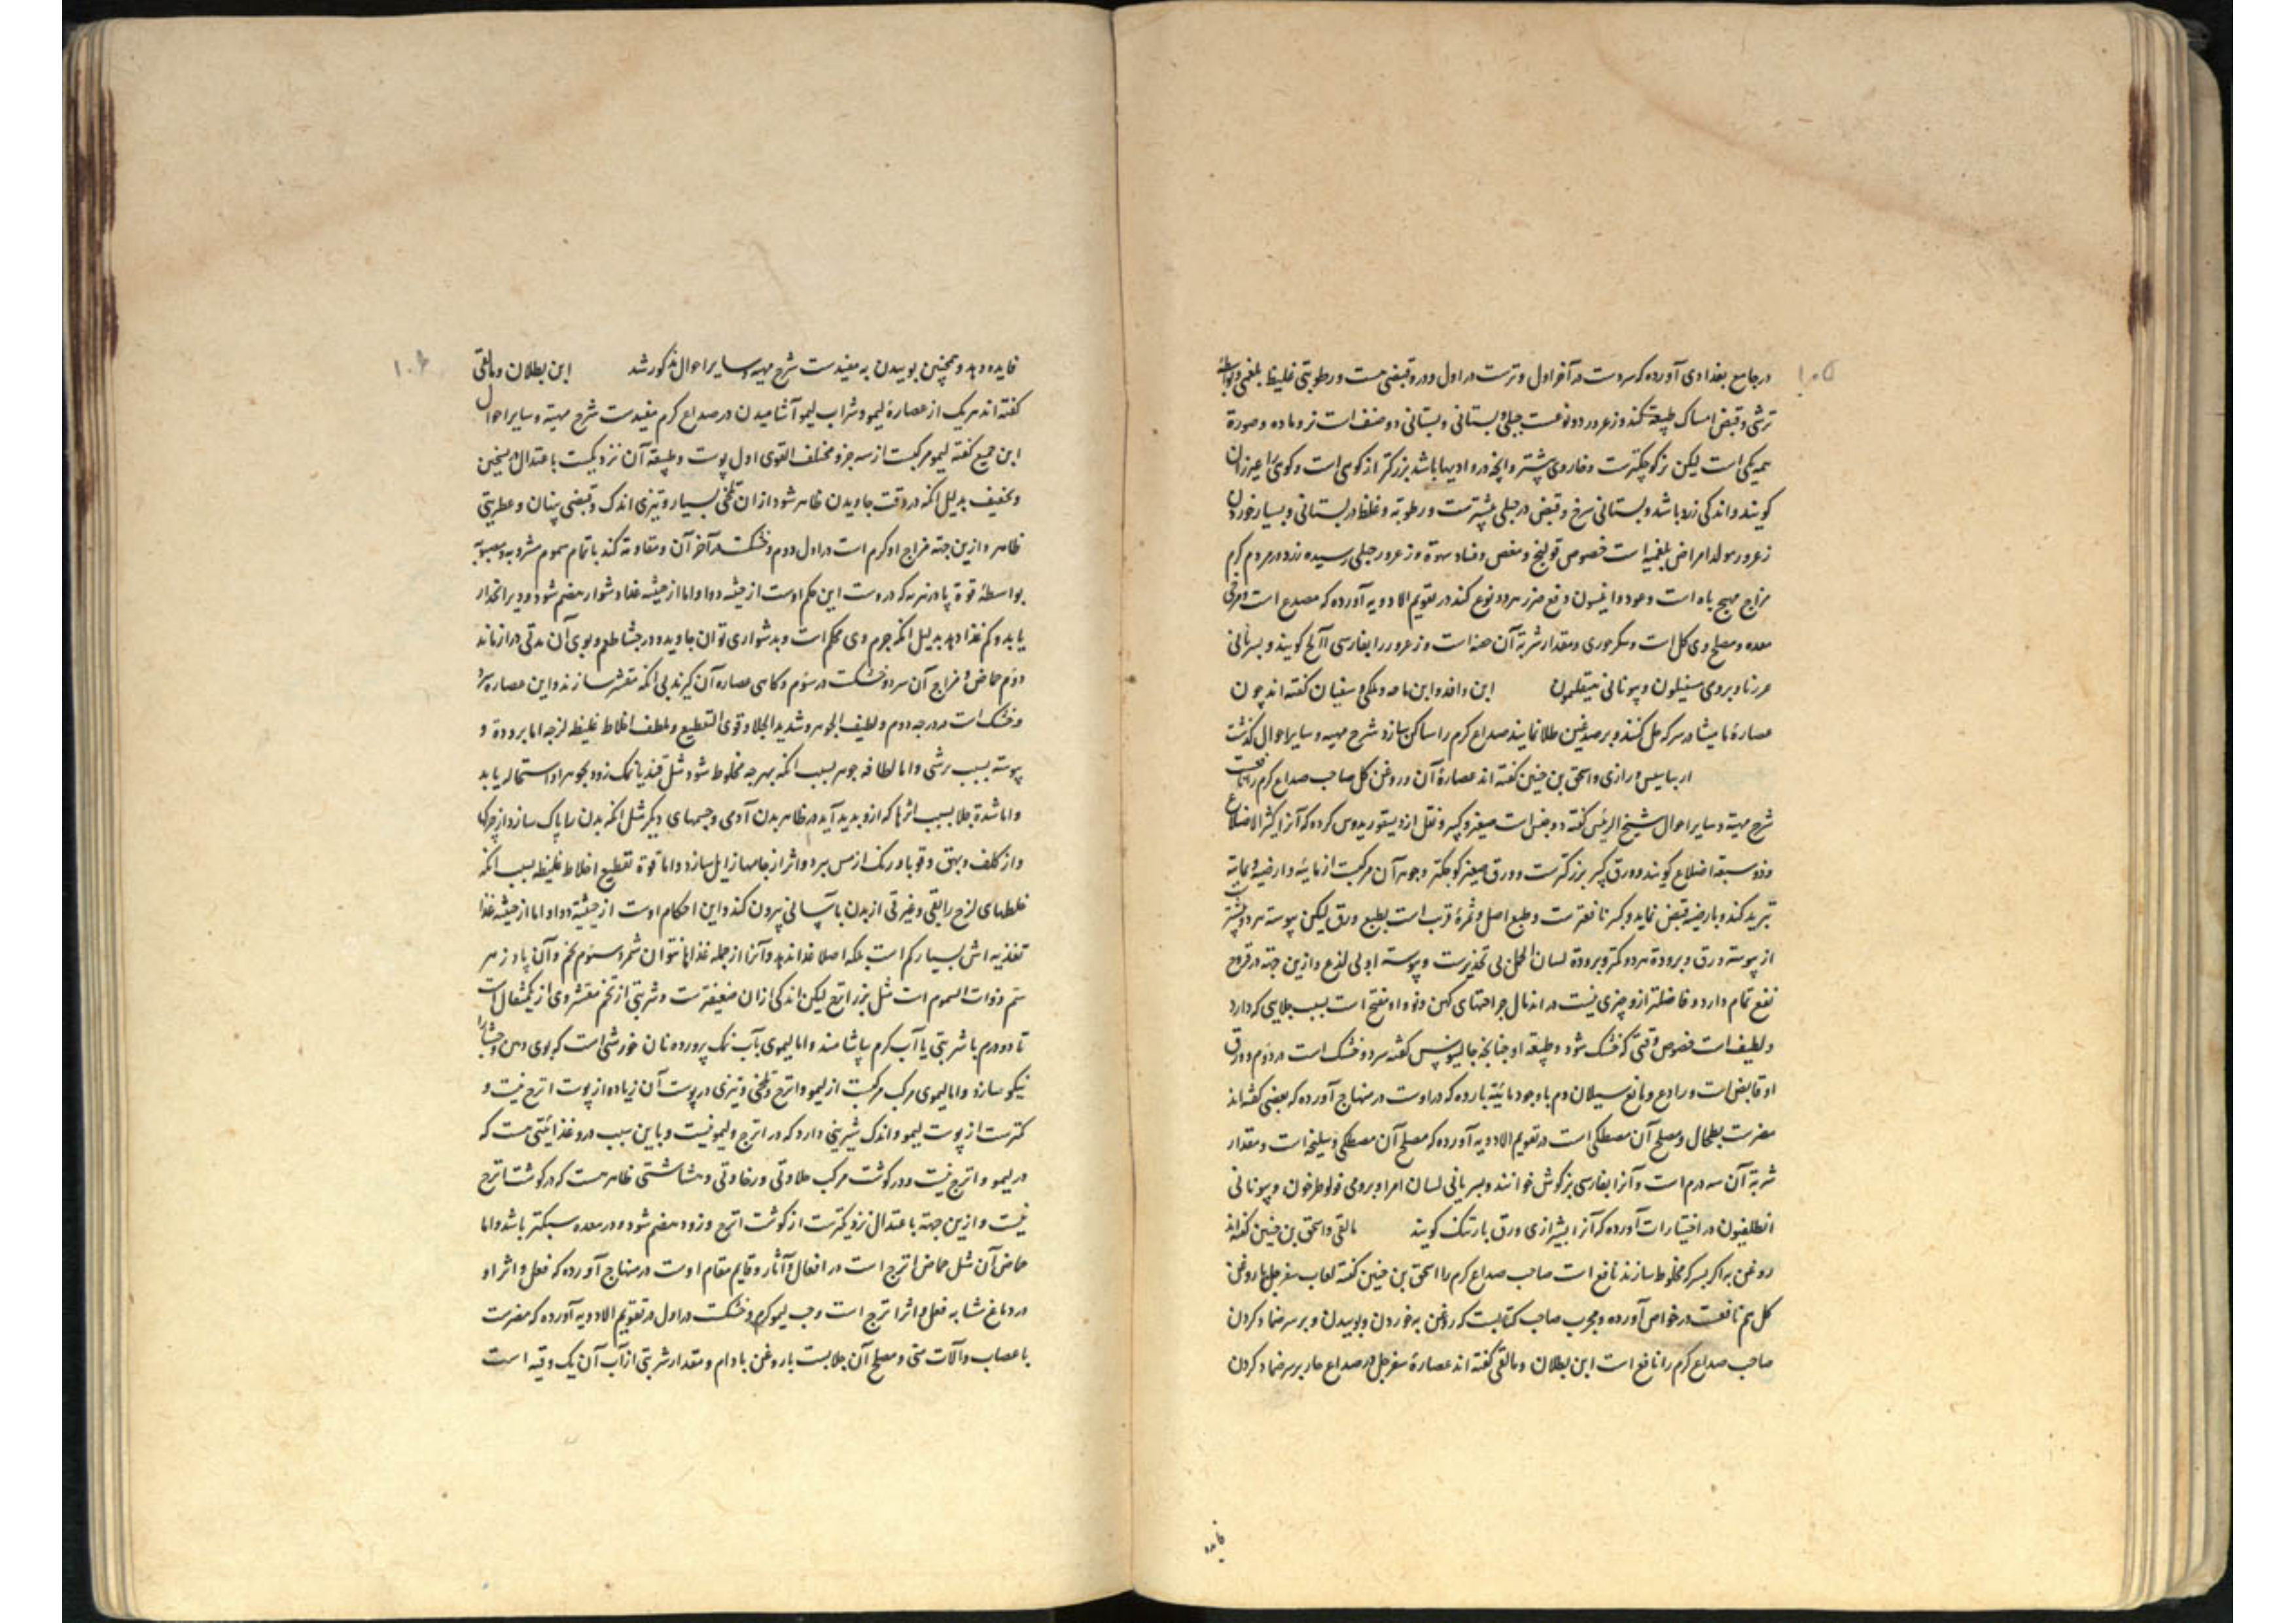 ۱۰۵
در جامع بغدادی آورده که سردست در آخر اول و ترست در اول و درو قبضی هست و رطوبتی غلیظ بلغمی و بواسطهٔ
ترشی و قبض امساک طبیعة کند و زعرور دو نوعست جبلی و بستانی و بستانی دو صنف است نر و ماده و صورة
همه یکی است لیکن نر کوچکترست و خار وی بیشتر و آنچه در وادیها باشد بزرکتر از کوهی است و کوهی را
کویند و اندکی زرد باشد و بستانی سرخ و قبض در جبلی بیشترست و رطوبة و غلظ در بستانی و بسیار خوردن
زعرور مولد امراض بلغمیه است خصوص قولنج و مغص و فساد و زعرور جبلی رسیده زرد در مردم کرم
مزاج مهیج باه است و عود و انیسون دفع ضرر هر دو نوع کند در تقویم الادویه آورده که مصدع است و مرخی
معده و مصلح وی کل است و مقدار شربة آن است و زعرور را بفارسی کویند و بسریانی
و برومی و یونانی ابن وافد و ابن ماسه و سفیان کفته اند چون
عصارهٔ مامیثا در سرکه حل کنند و بر صدغین طلا نمایند صداع کرم را ساکن سازد شرح مهیه و سایر احوال کذشت
رازی و اسحق بن حنین کفته اند عصارهٔ آن و روغن کل صاحب صداع کرم را نافعست
شرح مهیة و سایر احوال شیخ الرئیس کفته دو جنس است صغیر و کبیر و نقل از دیسقوریدوس کرده که آنرا کثیر الاضلاع
و ذو سبعة اضلاع کویند و ورق کبیر بزرکترست و ورق صغیر کوچکتر و جوهر آن مرکبست از مائیه و ارضیه و بمائیة
تبرید کند و بارضیه قبض نماید و کبیر نافعترست و طبع اصل و ثمرهٔ قریب است بطبع ورق لیکن یبوسة هر دو بیشتر
از یبوسة ورق و برودة هر دو کمتر و برودة لسان الحمل بی تخدیرست و یبوسة او بی لذع و ازین جهة در قروح
نفع تمام دارد و فاضلتر ازو چیزی نیست در اندمال جراحتهای کهن و نو و او مفتح است بسبب جلایی که دارد
و لطیف است خصوص وقتی که خشک شود و طبیعة او چنانچه جالینوس کفته سرد و خشک است در دوم و ورق
او قابض است و رادع و مانع سیلان دم با وجود مائیة بارده که در اوست در منهاج آورده که بعضی کفته اند
مضرست بطحال و مصلح آن مصطکی است در تقویم الادویه آورده که مصلح آن مصطکی و سلیخه است و مقدار
شربة آن سه درم است و آنرا بفارسی بزکوش خوانند و بسریانی لسان امرا و برومی و یونانی
در اختیارات آورده که آنرا بشیرازی ورق بارتنک کویند مالقی و اسحق بن حنین کفته اند
روغن به اکر بسرکه مخلوط سازند نافع است صاحب صداع کرم را اسحق بن حنین کفته لعاب سفرجل با روغن
کل هم نافعست در خواص آورده و مجرب صاحب کتابست که روغن به خوردن و بوییدن و بر سر ضماد کردن
صاحب صداع کرم را نافع است ابن بطلان و مالقی کفته اند عصارهٔ سفرجل در صداع حار بر سر ضماد کردن
فایده
۱۰۶
فایده دهد و همچنین بوییدن به مفیدست شرح مهیه و سایر احوال مذکور شد ابن بطلان و مالقی
کفته اند هریک از عصارهٔ لیمو و شراب لیمو آشامیدن در صداع کرم مفیدست شرح مهیة و سایر احوال
ابن جمیع کفته لیمو مرکبست از سه جزو مختلف القوی اول پوست و طبیعة آن نزدیکست باعتدال در تسخین
و تجفیف بدلیل انکه در وقت جاویدن ظاهر شود ازان تلخی بسیار و تیزی اندک و قبضی پنهان و عطریتی
ظاهر و ازین جهة مزاج او کرم است در اول دوم و خشکست در آخر آن و مقاومة کند با تمام سموم مشروبه و مصبوبه
بواسطهٔ قوة پادزهریه که دروست این حکم اوست از حیثیه دوا و اما از حیثیه غذا دشوار هضم شود و دیر انحدار
یابد و کم غذا دهد بدلیل انکه جرم وی محکم است و بدشواری توان جاوید و در جشا طعم و بوی آن مدتی دراز ماند
دوم حماض و مزاج آن سرد و خشکست در سوم و کاهی عصاره آن کیرند بی انکه مقشر سازند و این عصاره سرد
و خشک است در درجه دوم و لطیف الجوهر و شدید الجلا و قوی التقطیع و ملطف اخلاط غلیظه لزجه اما برودة و
یبوسة بسبب ترشی و اما لطافة جوهر بسبب انکه بهرچه مخلوط شود مثل قند یا نمک زود بجوهر او استحاله یابد
و اما شدة جلا بسبب اثرها که ازو پدید آید در ظاهر بدن آدمی و جسمهای دیکر مثل انکه بدن را پاک سازد از چرک
و از کلف و بهق و قوبا و رنک از مس ببرد و اثر از جامها زایل سازد و اما قوة تقطیع اخلاط غلیظه بسبب انکه
خلطهای لزج را بقی و غیر قی از بدن بآسانی بیرون کند و این احکام اوست از حیثیة دوا و اما از حیثیه غذا
تغذیه اش بسیار کم است بلکه اصلا غذا ندهد و آنرا از جمله غذاها نتوان شمرد سوم تخم و آن پادزهر
سم ذوات السموم است مثل بزر اترج لیکن اندکی ازان ضعیفترست و شربتی از تخم مقشر وی از یکمثقال است
تا دو درم با شربتی یا آب کرم بیاشامند و اما لیموی بآب نمک پرورده نان خورشی است که بوی دهن و جشا را
نیکو سازد و اما لیموی مرکب مرکبست از لیمو و اترج و تلخی و تیزی در پوست آن زیاده از پوست اترج نیست و
کمترست از پوست لیمو و اندک شیرینی دارد که در اترج و لیمو نیست و باین سبب درو غذائیتی هست که
در لیمو و اترج نیست و در کوشت مرکب حلاوتی و رخاوتی و هشاشتی ظاهر هست که در کوشت اترج
نیست و ازین جهة باعتدال نزدیکترست از کوشت اترج و زود هضم شود و در معده سبکتر باشد و اما
حماض آن مثل حماض اترج است در افعال و آثار و قایم مقام اوست در منهاج آورده که فعل و اثر او
در دماغ مشابه فعل و اثر اترج است و حب لیمو کرم و خشکست در اول در تقویم الادویه آورده که مضرست
باعصاب و آلات منی و مصلح آن جلابست با روغن بادام و مقدار شربتی از آب آن یک وقیه است